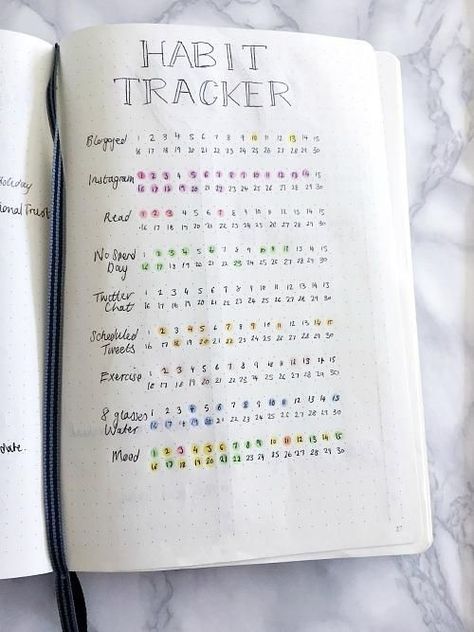 HABIT
TRACKER
Blogged 1 2 3 4 5 6 7 8 9 10 11 12 13 14 15
16 17 18 19 20 21 22 23 24 25 26 27 28 29 30
Instagram 1 2 3 4 5 6 7 8 9 10 11 12 13 14 15
16 17 18 19 20 21 22 23 24 25 26 27 28 29 30
Read 1 2 3 4 5 6 7 8 9 10 11 12 13 14 15
16 17 18 19 20 21 22 23 24 25 26 27 28 29 30
No Spend 1 2 3 4 5 6 7 8 9 10 11 12 13 14 15
Day 16 17 18 19 20 21 22 23 24 25 26 27 28 29 30
Twitter 1 2 3 4 5 6 7 8 9 10 11 12 13 14 15
Chat 16 17 18 19 20 21 22 23 24 25 26 27 28 29 30
Scheduled 1 2 3 4 5 6 7 8 9 10 11 12 13 14 15
Tweets 16 17 18 19 20 21 22 23 24 25 26 27 28 29 30
Exercise 1 2 3 4 5 6 7 8 9 10 11 12 13 14 15
16 17 18 19 20 21 22 23 24 25 26 27 28 29 30
8 glasses 1 2 3 4 5 6 7 8 9 10 11 12 13 14 15
Water 16 17 18 19 20 21 22 23 24 25 26 27 28 29 30
Mood 1 2 3 4 5 6 7 8 9 10 11 12 13 14 15
16 17 18 19 20 21 22 23 24 25 26 27 28 29 30